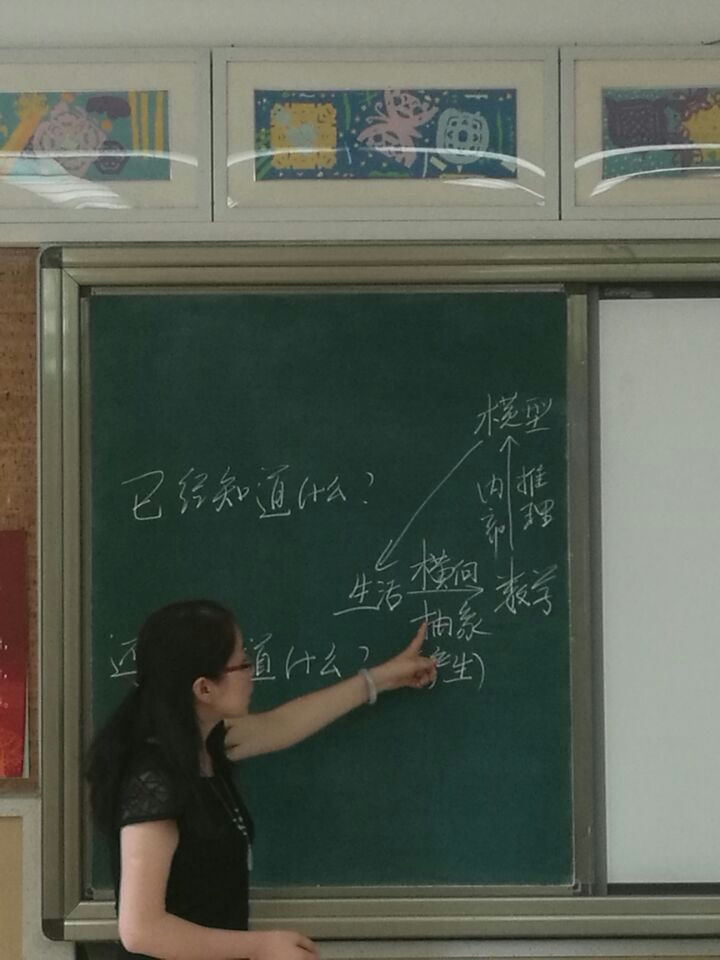 已经知道什么?
还 道什么?
模型
内部
推理
生活
横向
抽象
(产生)
数学